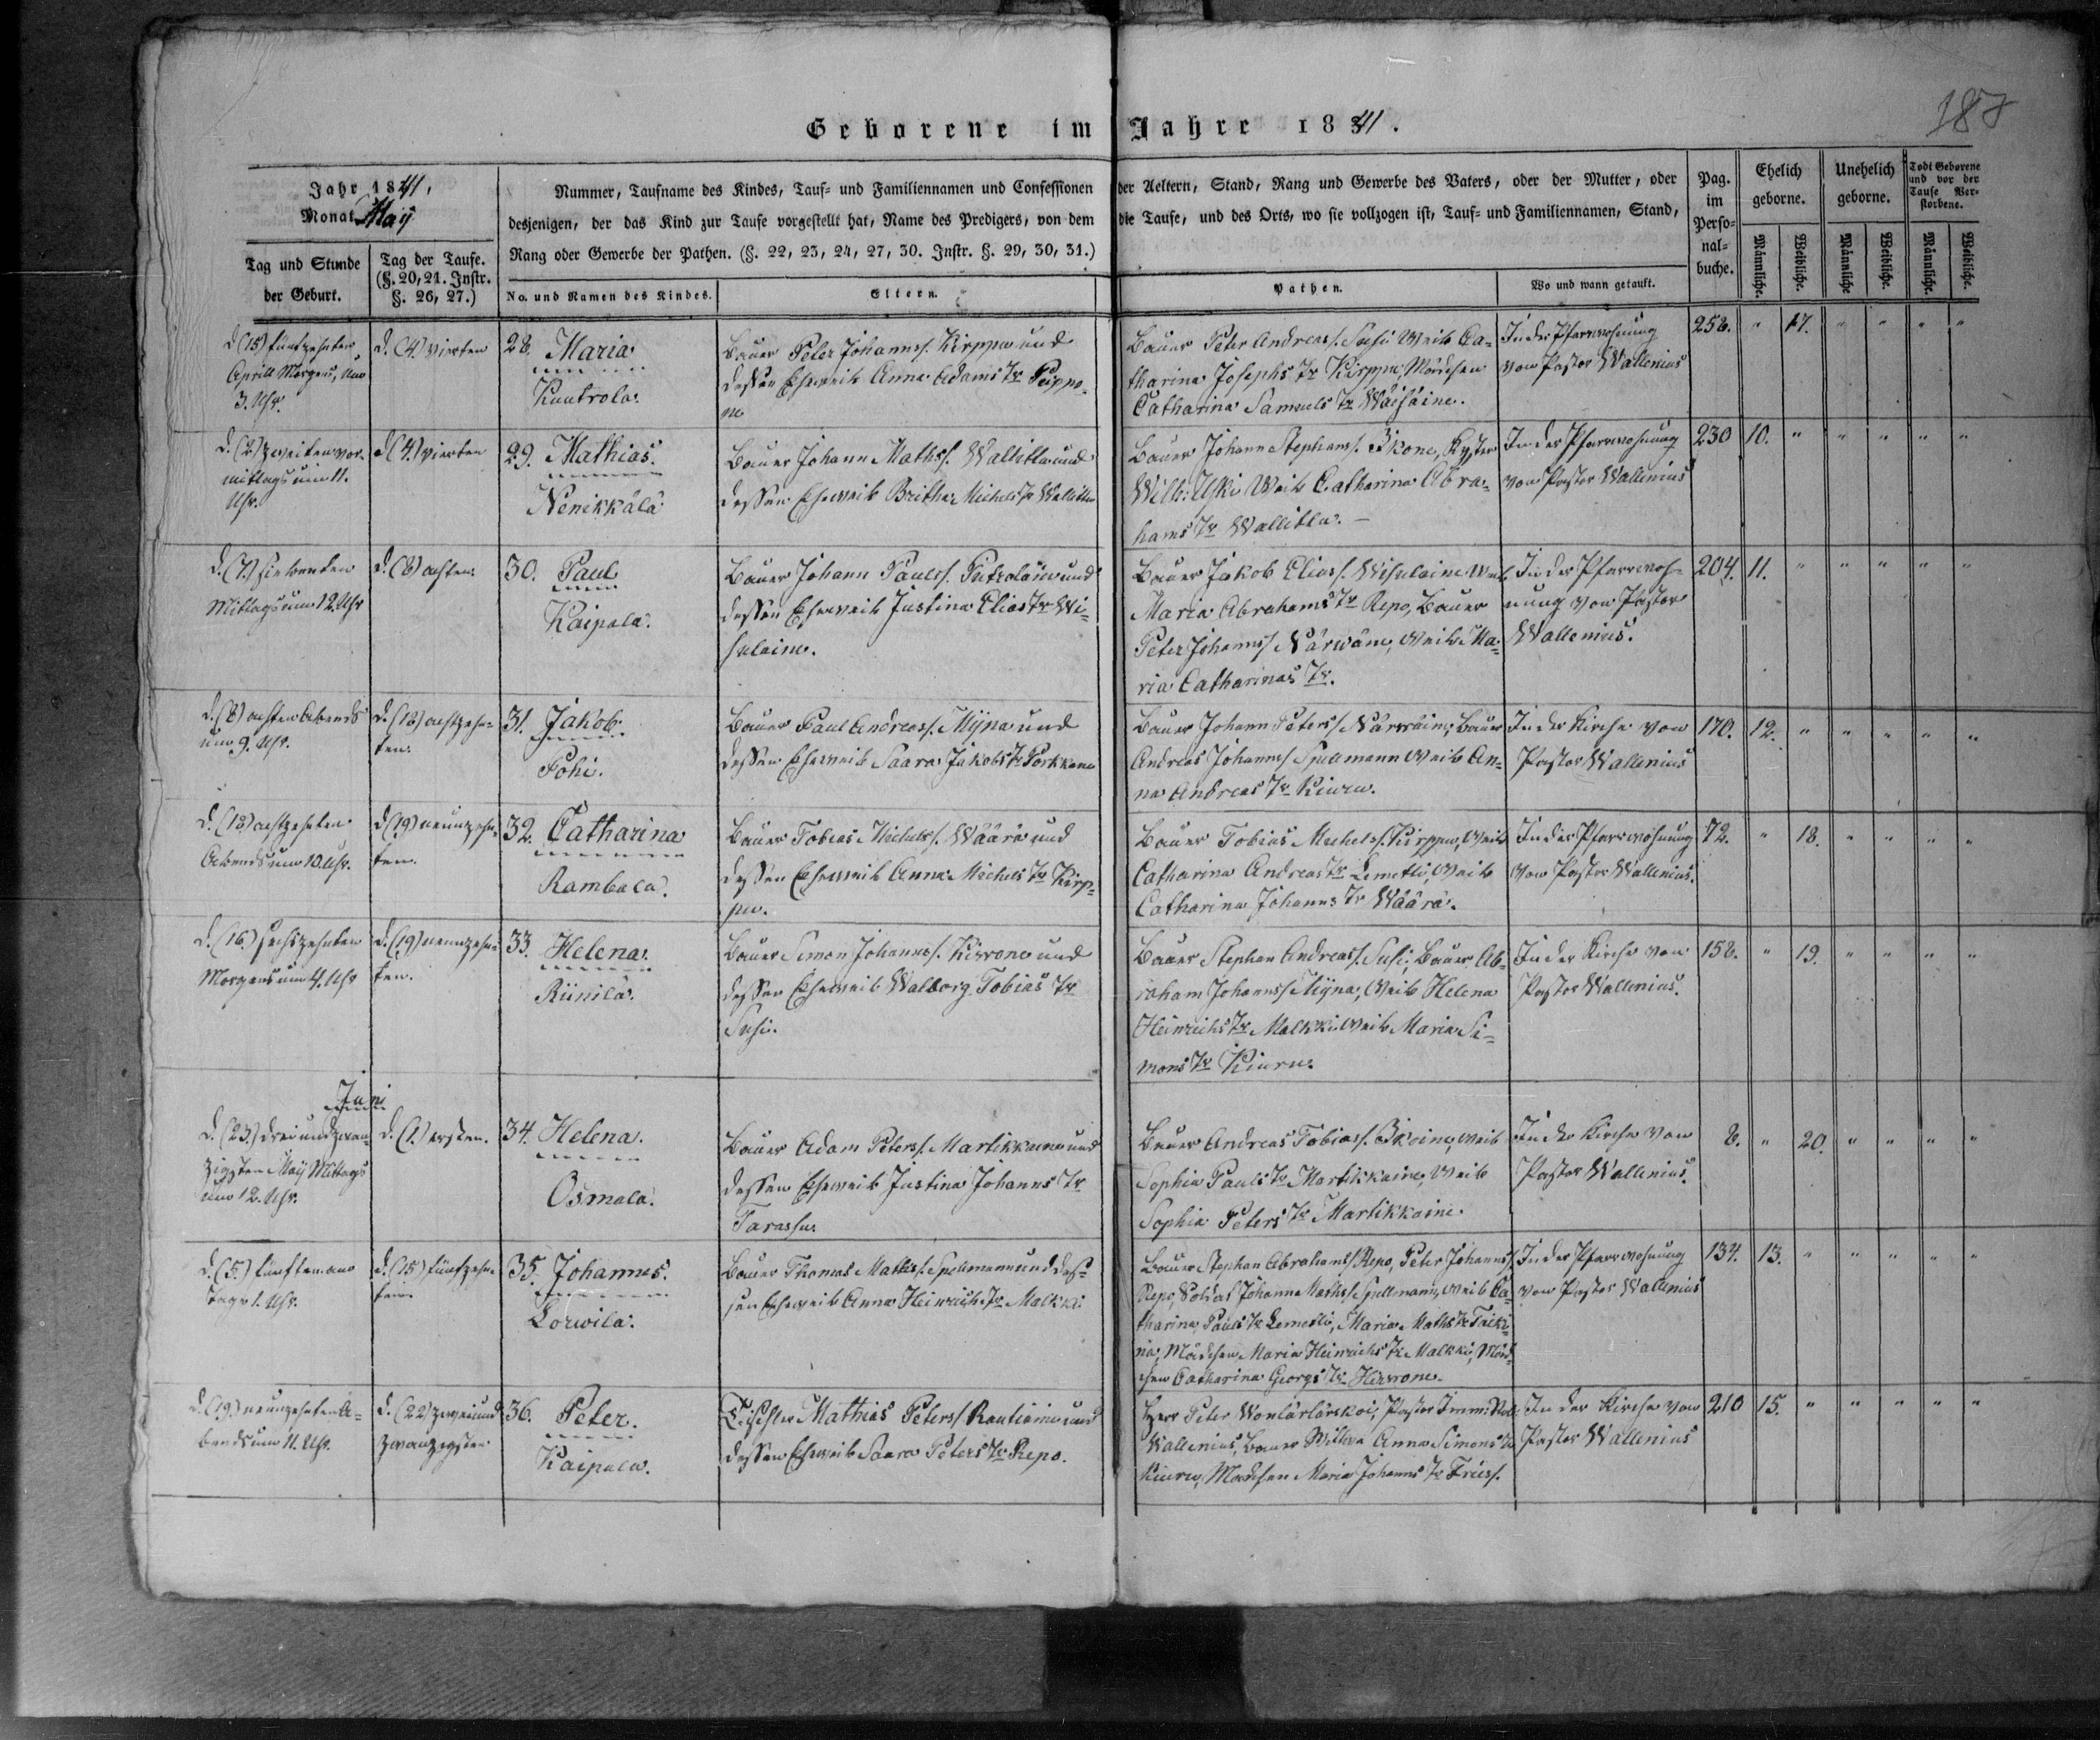 187
Geborene im Jahre 1841.
Jahr 1841,
Monat May
Tag und Stunde
der Geburt.
Tag der Taufe.
(§. 20, 21. Instr.
§. 26, 27.)
Nummer, Taufname des Kindes, Tauf- und Familiennamen und Confessionen der Aeltern, Stand, Rang und Gewerbe des Vaters, oder der Mutter, oder
desjenigen, der das Kind zur Taufe vorgestellt hat, Name des Predigers, von dem die Taufe, und des Orts, wo sie vollzogen ist, Tauf- und Familiennamen, Stand,
Rang oder Gewerbe der Pathen. (§. 22, 23, 24, 27, 30. Instr. §. 29, 30, 31.)
No. und Namen des Kindes.
Eltern.
Pathen.
Wo und wann getauft.
Pag.
im
Perso-
nal-
buche.
Ehelich
geborne.
Unehelich
geborne.
Todt Geborene
und vor der
Taufe Ver-
storbene.
Männliche.
Weibliche.
Männliche
Weibliche.
Männliche.
Weibliche.
d. (15) fünfzehnten
Aprill Morgens, um
3. Uhr.
d. (4.) vierten
28. Maria
Kuutrola.
Bauer Peter Johannss. Kirppu und
dessen Eheweib Anna Adams Tr Peippo-
ne
Bauer Peter Andreass. Susi Weib Ca-
tharina Josephs Tr Kirppu, Mädchen
Catharina Samuels Tr Wäisäine.
In der Pfarrwohnung
von Pastor Wallenius
258. " 17. " " " "
d. (2) zweiten vor-
mittags um 11.
Uhr.
d (4.) vierten
29. Mathias.
Nenikkälä
Bauer Johann Mathss. Wallitta und
dessen Eheweib Britha Michels Tr Wallitta
Bauer Johann Stephanss. Ikone, Kyster
Wilh: Uski Weib Catharina Abra-
hams Tr Wallitta. —
In der Pfarrwohnung
von Pastor Wallenius
230 10. " " " " "
d. (7.) siebenten
Mittags um 12. Uhr
d. (8) achten
30. Paul
Kaipala.
Bauer Johann Paulss. Putrolaine und
dessen Eheweib Justina Elias Tr Wi-
hulaine.
Bauer Jakob Eliass. Wihulaine Weib
Maria Abrahams Tr Repo, Bauer
Peter Johannss. Närwäne, Weib Ma-
ria Catharinas Tr.
In der Pfarrwoh-
nung von Pastor
Wallenius.
204. 11. " " " " "
d. (8) achten Abends
um 9. Uhr.
d. (18) achtzehn-
ten.
31. Jakob.
Pohi.
Bauer Paul Andreass. Myna und
dessen Eheweib Saara Jakobs Tr Porkkane
Bauer Johann Peterss. Närwäine, Bauer
Andreas Johannss. Spellmann Weib An-
na Andreas Tr Kiuru.
In der Kirche von
Pastor Wallenius
170. 12. " " " " "
d. (18) achtzehnten
Abends um 10. Uhr.
d (19) neunzehn-
ten.
32. Catharina
Rambala.
Bauer Tobias Michelss. Wäärä und
dessen Eheweib Anna Michels Tr Kirp-
pu.
Bauer Tobias Michelss. Kirppu, Weib
Catharina Andreas Tr Lemetti, Weib
Catharina Johanns Tr Wäärä.
In der Pfarrwohnung
von Pastor Wallenius.
72. " 18. " " " "
d. (16.) sechszehnten
Morgens um 4. Uhr
d. (19) neunzehn-
ten.
33. Helena.
Riinilä.
Bauer Simon Johannss. Kirrone und
dessen Eheweib Walborg Tobias Tr
Susi.
Bauer Stephan Andreass. Susi, Bauer Ab-
raham Johannss. Myna, Weib Helena
Heinrichs Tr Malkki Weib Maria Si-
mons Tr Kiuru.
In der Kirche von
Pastor Wallenius.
158. " 19. " " " "
Juni
d. (23.) dreiundzwan-
zigsten May Mittags
um 12. Uhr.
d. (1.) ersten.
34. Helena.
Osmala.
Bauer Adam Peterss. Martikkaine und
dessen Eheweib Justina Johanns Tr
Tarassu.
Bauer Andreas Tobiass. Ikoine, Weib
Sophia Pauls Tr Martikkaine, Weib
Sophia Peters Tr Martikkaine.
In der Kirche von
Pastor Wallenius.
8. " 20. " " " "
d. (5.) fünften am
Tage 1. Uhr.
d. (15) fünfzehn-
ten.
35. Johannes.
Lorwila.
Bauer Thomas Mathss. Spellmann und des-
sen Eheweib Anna Heinrichs Tr Malkki
Bauer Stephan Abrahamss. Repo, Peter Johannss.
Repo, Soldat Johann Mathss. Spellmann, Weib Ca-
tharina Pauls Tr Lemetti, Maria Maths Tr
Mädchen Maria Heinrichs Tr Malkki, Mäd-
chen Catharina Georgs Tr
In der Pfarrwohnung
von Pastor Wallenius
134. 13. " " " " "
d. (19.) neunzehnten A-
bends um 11. Uhr.
d. (22) zweiund
zwanzigsten
36. Peter.
Kaipala.
Tischler Mathias Peterss. Rautiaine und
dessen Eheweib Saara Peters Tr Repo.
Herr Peter Pastor Imm:
Wallenius, Bauer Wittwe Anna Simons Tr
Kiuru, Mädchen Maria Johanns Tr
In der Kirche von
Pastor Wallenius
210 15. " " " " "